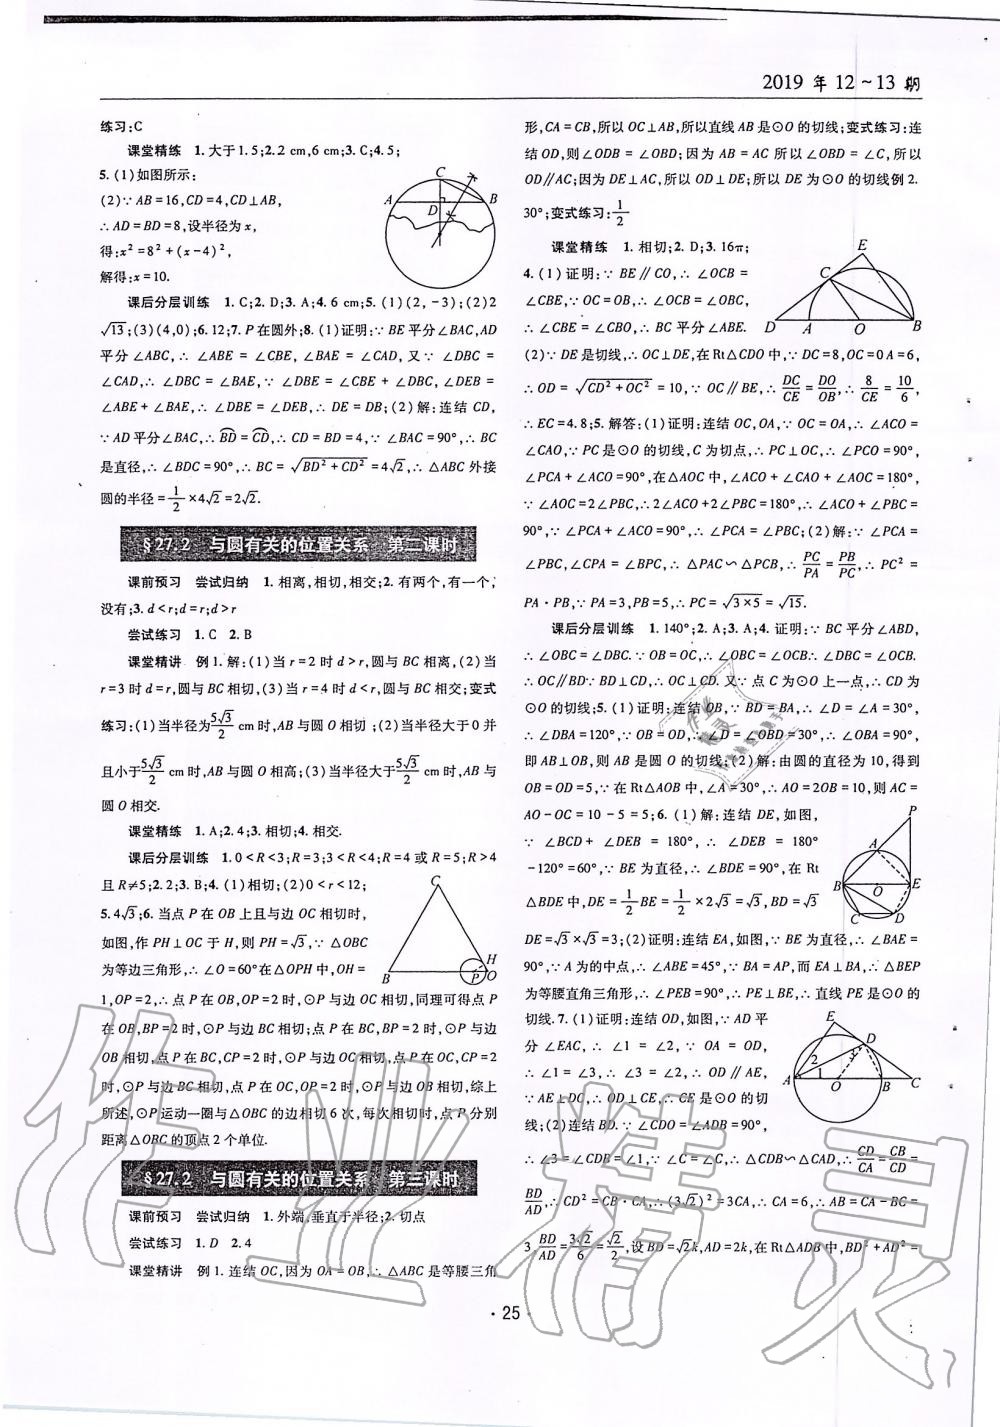 2019 年 12~13 期
练习:C
课堂精练 1.大于1.5;2.2 cm,6 cm;3.C;4.5;
5.(1)如图所示:
(2)∵AB=16,CD=4,CD⊥AB,
∴AD=BD=8,设半径为x,
得:x²=8²+(x-4)²,
解得:x=10.
A
B
C
D
课后分层训练 1.C;2.D;3.A;4.6 cm;5.(1)(2,-3);(2)2
√13;(3)(4,0);6.12;7.P在圆外;8.(1)证明:∵BE平分∠BAC,AD
平分∠ABC,∴∠ABE=∠CBE,∠BAE=∠CAD,又∵∠DBC=
∠CAD,∴∠DBC=∠BAE,∵∠DBE=∠CBE+∠DBC,∠DEB=
∠ABE+∠BAE,∴∠DBE=∠DEB,∴DE=DB;(2)解:连结CD,
∵AD平分∠BAC,∴BD=CD,∴CD=BD=4,∵∠BAC=90°,∴BC
是直径,∴∠BDC=90°,∴BC=√(BD²+CD²)=4√2,∴△ABC外接
圆的半径=1/2×4√2=2√2.
§27.2 与圆有关的位置关系 第二课时
课前预习 尝试归纳 1.相离,相切,相交;2.有两个,有一个,
没有;3.d<r;d=r;d>r
尝试练习 1.C 2.B
课堂精讲 例1.解:(1)当r=2时d>r,圆与BC相离,(2)当
r=3时d=r,圆与BC相切,(3)当r=4时d<r,圆与BC相交;变式
练习:(1)当半径为5√3/2 cm时,AB与圆O相切;(2)当半径大于0并
且小于5√3/2 cm时,AB与圆O相高;(3)当半径大于5√3/2 cm时,AB与
圆O相交.
课堂精练 1.A;2.4;3.相切;4.相交.
课后分层训练 1.0<R<3;R=3;3<R<4;R=4或R=5;R>4
且R≠5;2.2;3.B;4.(1)相切;(2)0<r<12;
5.4√3;6.当点P在OB上且与边OC相切时,
如图,作PH⊥OC于H,则PH=√3,∵△OBC
为等边三角形,∴∠O=60°在△OPH中,OH=
C
B
P
H
O
1,OP=2,∴点P在OB,OP=2时,⊙P与边OC相切,同理可得点P
在OB,BP=2时,⊙P与边BC相切;点P在BC,BP=2时,⊙P与边
OB相切,点P在BC,CP=2时,⊙P与边OC相切,点P在OC,CP=2
时,⊙P与边BC相切,点P在OC,OP=2时,⊙P与边OB相切,综上
所述,⊙P运动一圈与△OBC的边相切6次,每次相切时,点P分别
距离△OBC的顶点2个单位.
§27.2 与圆有关的位置关系 第三课时
课前预习 尝试归纳 1.外端,垂直于半径;2.切点
尝试练习 1.D 2.4
课堂精讲 例1.连结OC,因为OA=OB,∴△ABC是等腰三角
形,CA=CB,所以OC⊥AB,所以直线AB是⊙O的切线;变式练习:连
结OD,则∠ODB=∠OBD;因为AB=AC所以∠OBD=∠C,所以
OD∥AC;因为DE⊥AC,所以OD⊥DE;所以DE为⊙O的切线例2.
30°;变式练习:1/2
课堂精练 1.相切;2.D;3.16π;
4.(1)证明:∵BE∥CO,∴∠OCB=
∠CBE,∵OC=OB,∴∠OCB=∠OBC,
∴∠CBE=∠CBO,∴BC平分∠ABE.
E
C
D
A
O
B
(2)∵DE是切线,∴OC⊥DE,在Rt△CDO中,∵DC=8,OC=0A=6,
∴OD=√(CD²+OC²)=10,∵OC∥BE,∴DC/CE=DO/OB,∴8/CE=10/6,
∴EC=4.8;5.解答:(1)证明:连结OC,OA,∵OC=OA,∴∠ACO=
∠CAO,∵PC是⊙O的切线,C为切点,∴PC⊥OC,∴∠PCO=90°,
∠PCA+∠ACO=90°,在△AOC中,∠ACO+∠CAO+∠AOC=180°,
∵∠AOC=2∠PBC,∴2∠ACO+2∠PBC=180°,∴∠ACO+∠PBC=
90°,∵∠PCA+∠ACO=90°,∴∠PCA=∠PBC;(2)解:∵∠PCA=
∠PBC,∠CPA=∠BPC,∴△PAC∽△PCB,∴PC/PA=PB/PC,∴PC²=
PA·PB,∵PA=3,PB=5,∴PC=√(3×5)=√15.
课后分层训练 1.140°;2.A;3.A;4.证明:∵BC平分∠ABD,
∴∠OBC=∠DBC.∵OB=OC,∴∠OBC=∠OCB∴∠DBC=∠OCB.
∴OC∥BD∵BD⊥CD,∴OC⊥CD.又∵点C为⊙O上一点,∴CD为
⊙O的切线;5.(1)证明:连结OB,∵BD=BA,∴∠D=∠A=30°,
∴∠DBA=120°,∵OB=OD,∴∠D=∠OBD=30°,∴∠OBA=90°,
即AB⊥OB,则AB是圆O的切线;(2)解:由圆的直径为10,得到
OB=OD=5,∵在Rt△AOB中,∠A=30°,∴AO=2OB=10,则AC=
AO-OC=10-5=5;6.(1)解:连结DE,如图,
∵∠BCD+∠DEB=180°,∴∠DEB=180°
-120°=60°,∵BE为直径,∴∠BDE=90°,在Rt
△BDE中,DE=1/2BE=1/2×2√3=√3,BD=√3
P
A
B
O
E
C
D
DE=√3×√3=3;(2)证明:连结EA,如图,∵BE为直径,∴∠BAE=
90°,∵A为的中点,∴∠ABE=45°,∵BA=AP,而EA⊥BA,∴△BEP
为等腰直角三角形,∴∠PEB=90°,∴PE⊥BE,∴直线PE是⊙O的
切线.7.(1)证明:连结OD,如图,∵AD平
分∠EAC,∴∠1=∠2,∵OA=OD,
∴∠1=∠3,∴∠3=∠2,∴OD∥AE,
∵AE⊥DC,∴OD⊥CE,∴CE是⊙O的切
线;(2)连结BD.∵∠CDO=∠ADB=90°,
E
D
2
3
1
A
O
B
C
∴∠3=∠CDB=∠1,∵∠C=∠C,∴△CDB∽△CAD,∴CD/CA=CB/CD=
BD/AD,∴CD²=CB·CA,∴(3√2)²=3CA,∴CA=6,∴AB=CA-BC=
3,BD/AD=3√2/6=√2/2,设BD=√2k,AD=2k,在Rt△ADB中,BD²+AD²=
·25·
作业精灵